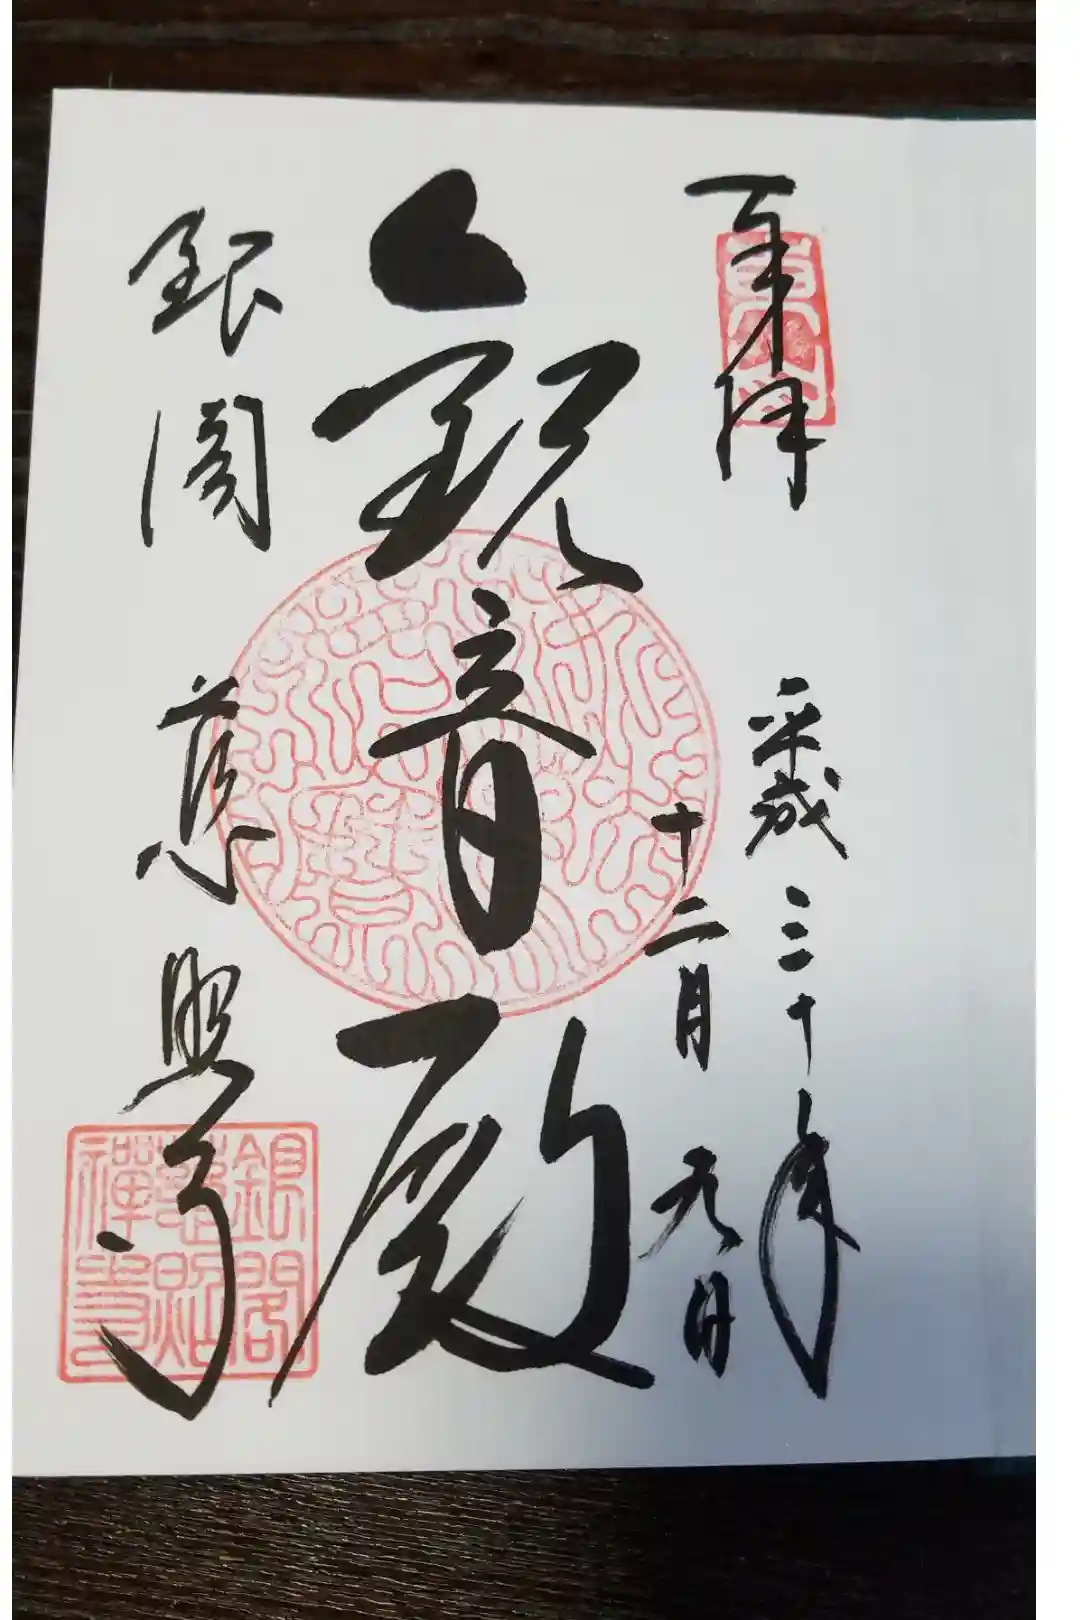 奉拝
平成三十年
十二月九日
観音殿
銀閣 慈照寺
銀閣
慈照
禪寺